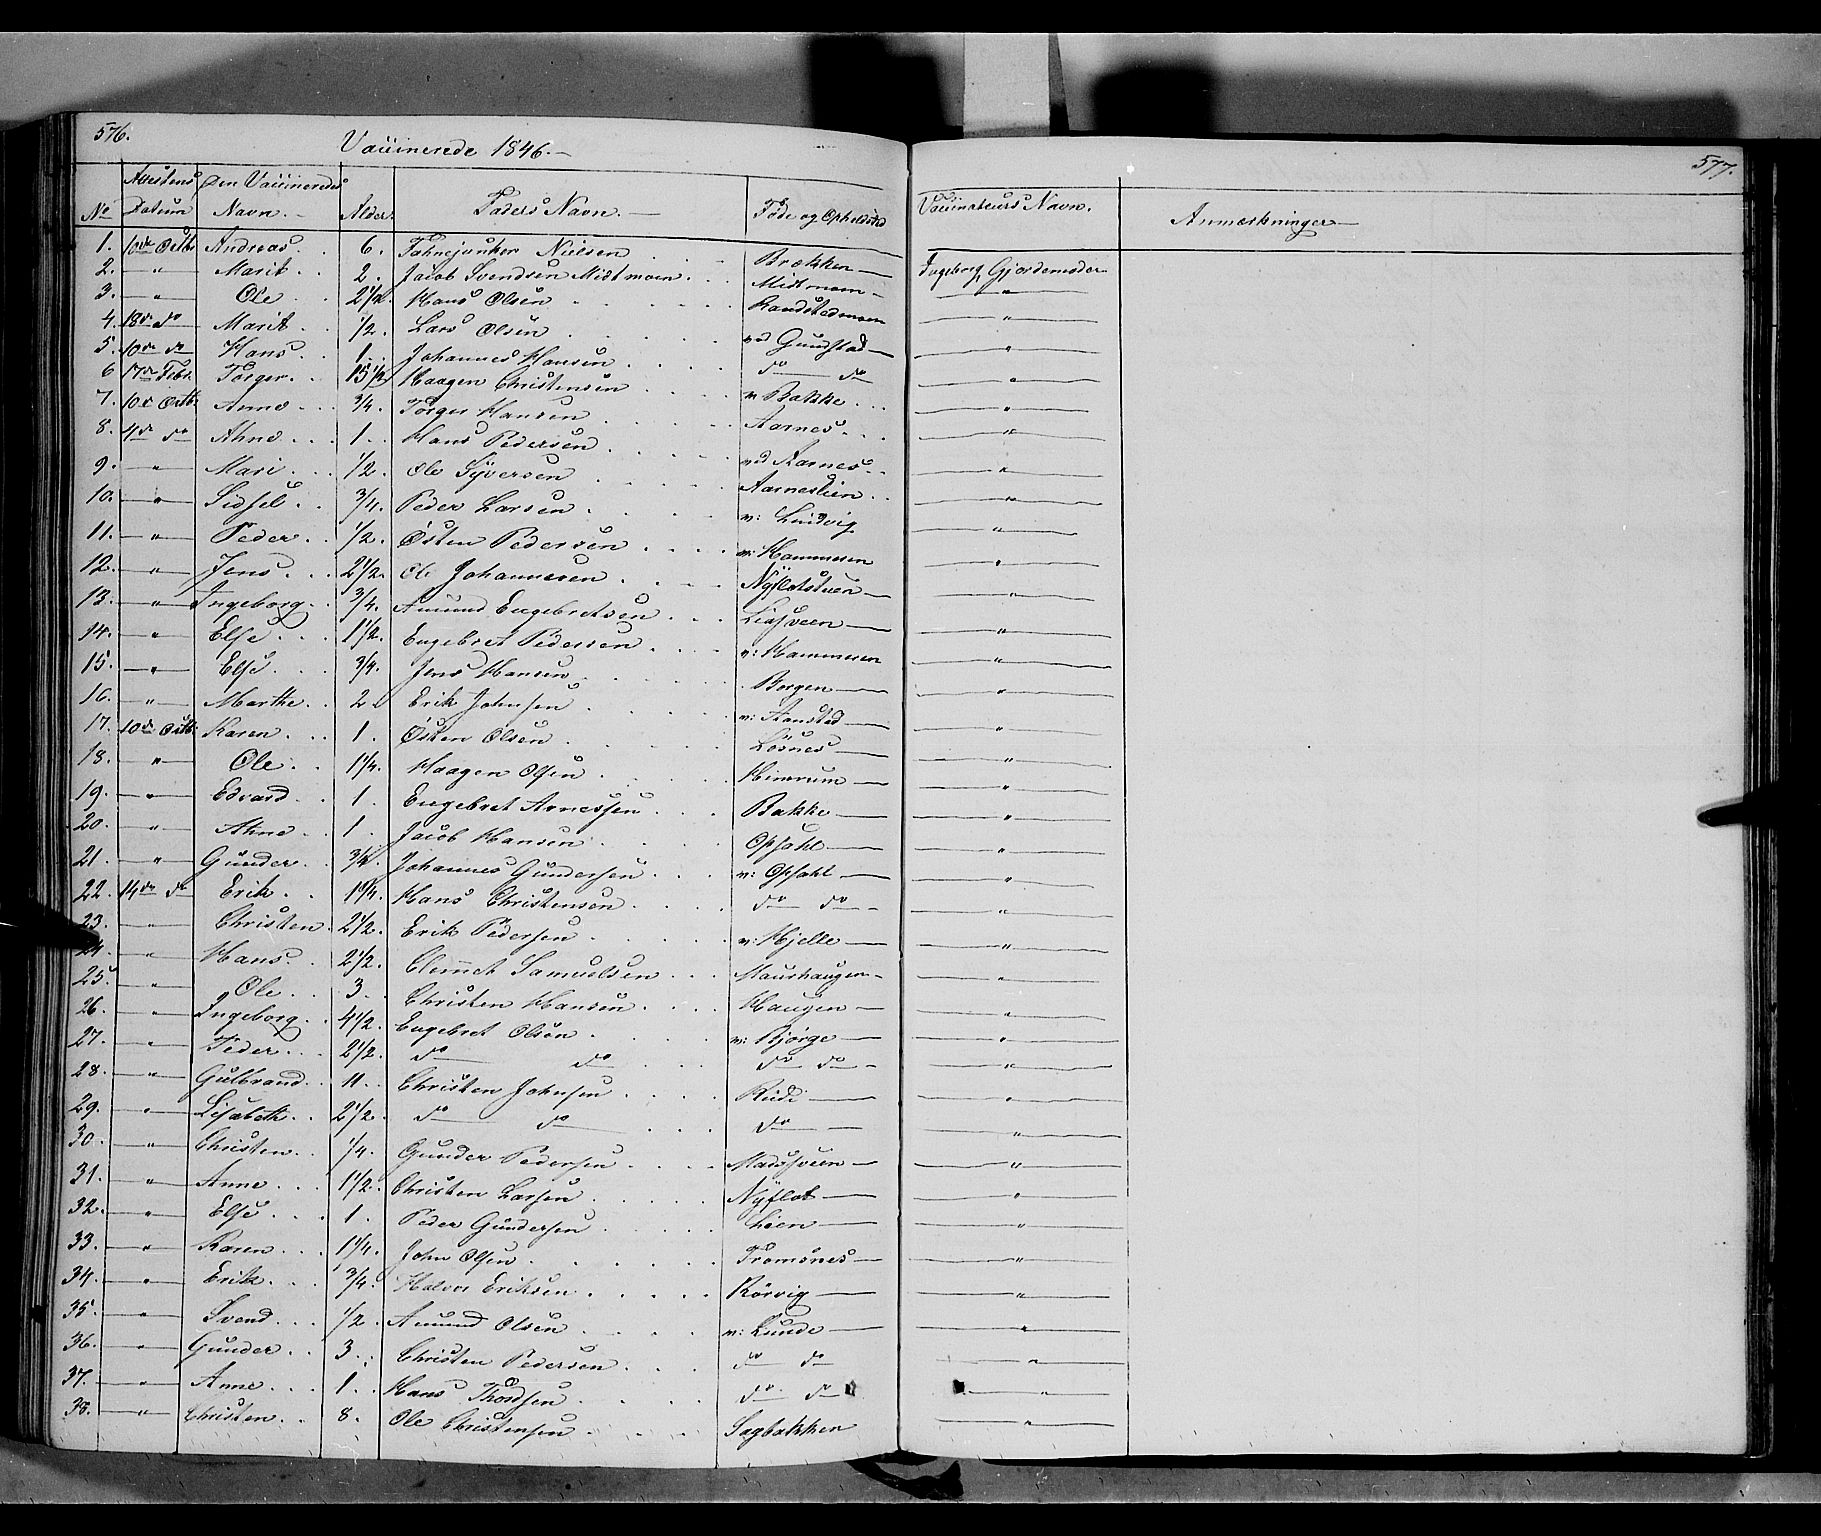 576.
Vaccinerede 1846. —
No
Attestens Datum
Den Vaccineredes Navn. —
Alder.
Faders Navn. —
Føde og Opholdsted
1. 10de Octbr Andreas . . 6. Fahnejunker Nielsen . . . Brækken —
2. — " — Marit . . 2. Jacob Svendsen Midtmoen . . . Midtmoen —
3. — " — Ole . . 2 1/2 Hans Olsen . . . Randstadmoen
4. 18de do Marit . . 1/2. Lars Olsen . . . ved Gundstad —
5. 10de do Hans . . 1. Johannes Hansen . . . do — do
6 17de Febr. Torger . . 15 1/2 Haagen Christensen . . . v Bakke . . .
7. 10de Octbr. Anne . . . 3/4. Torger Hansen . . . Aarnes . . .
8. 4de do Ahne . . . 1. . Hans Pedersen . . . ved Aarnes . .
9. — " — Mari . . . 1/2. Ole Syversen . . . Aarneslien . .
10. — " — Sidsel . . 3/4. Peder Larsen . . . v: Lindvig
11. — " — Peder . . 1/2. Østen Pedersen . . . . v: Hammeren
12. — " — Jens . . . 2 1/2. Ole Johannesen . . . Nyflotstuen —
13. — " — Ingeborg . . 3/4. Amund Engebretsen . . . Liasveen —
14. — " — Else . . . 1 1/2. Engebret Pedersen . . . v: Hammeren
15. — " — Else . . . 3/4. Jens Hansen . . . Borgen —
16. — " — Marthe . . 2 Erik Johnsen . . . v: Aanstad —
17. 10de Octb. Karen . . . 1. Østen Olsen . . . Løsnes —
18. — " — Ole . . 1 1/4. Haagen Olsen . . . Heimrum —
19. — " — Edvard . . 1. Engebret Arnessen . . . Bakke —
20. — " — Ahne . . 1. Jacob Hansen . . . Opsahl —
21. — " — Gunder . . 3/4. Johannes Gundersen . . . v: Opsahl —
22. 14de do Erik . . 1 1/4. Hans Christensen . . . do do —
23. — " — Christen . 2 1/2. Erik Pedersen . . . v: Hjelle —
24. — " — Hans . . 2 1/2. Clemmet Samuelsen . . . Maurhaugen —
25. — " — Ole . . 3. . Christen Hansen . . . Haugen —
26. — " — Ingeborg . . 4 1/2. Engebret Olsen . . . v: Bjørge —
27. — " — Peder . . . 2 1/2. do — do . . . do do —
28. — " — Gulbrand . . 11. . Christen Johnsen . . . Rudi —
29. — " — Lisabeth . . 2 1/2. do — do . . . do —
30. — " — Christen . . 1/4. Gunder Pedersen . . . . Madssveen —
31. — " — Anne . . . 1 1/2. Christen Larsen . . . Nyflot —
32. — " — Else . . . 1. Peder Gundersen . . . Lien —
33. — " — Karen . . . 1 1/4. John Olsen . . . Tromsnes —
34. — " — Erik . . . 3/4. Halvor Eriksen . . . Rørvig —
35. — " — Svend . . . 1/2. Amund Olsen . . . v: Lunde —
36. — " — Gunder . . 3 . . Christen Pedersen . . . do do
37. — " — Anne . . . 1. . Hans Thordsen . . . do do
38. — " — Christen . . 8. Ole Christensen . . . Sagbakken
577.
Vaccinateurs Navn.
Anmærkninger —
Ingeborg Gjordemoder